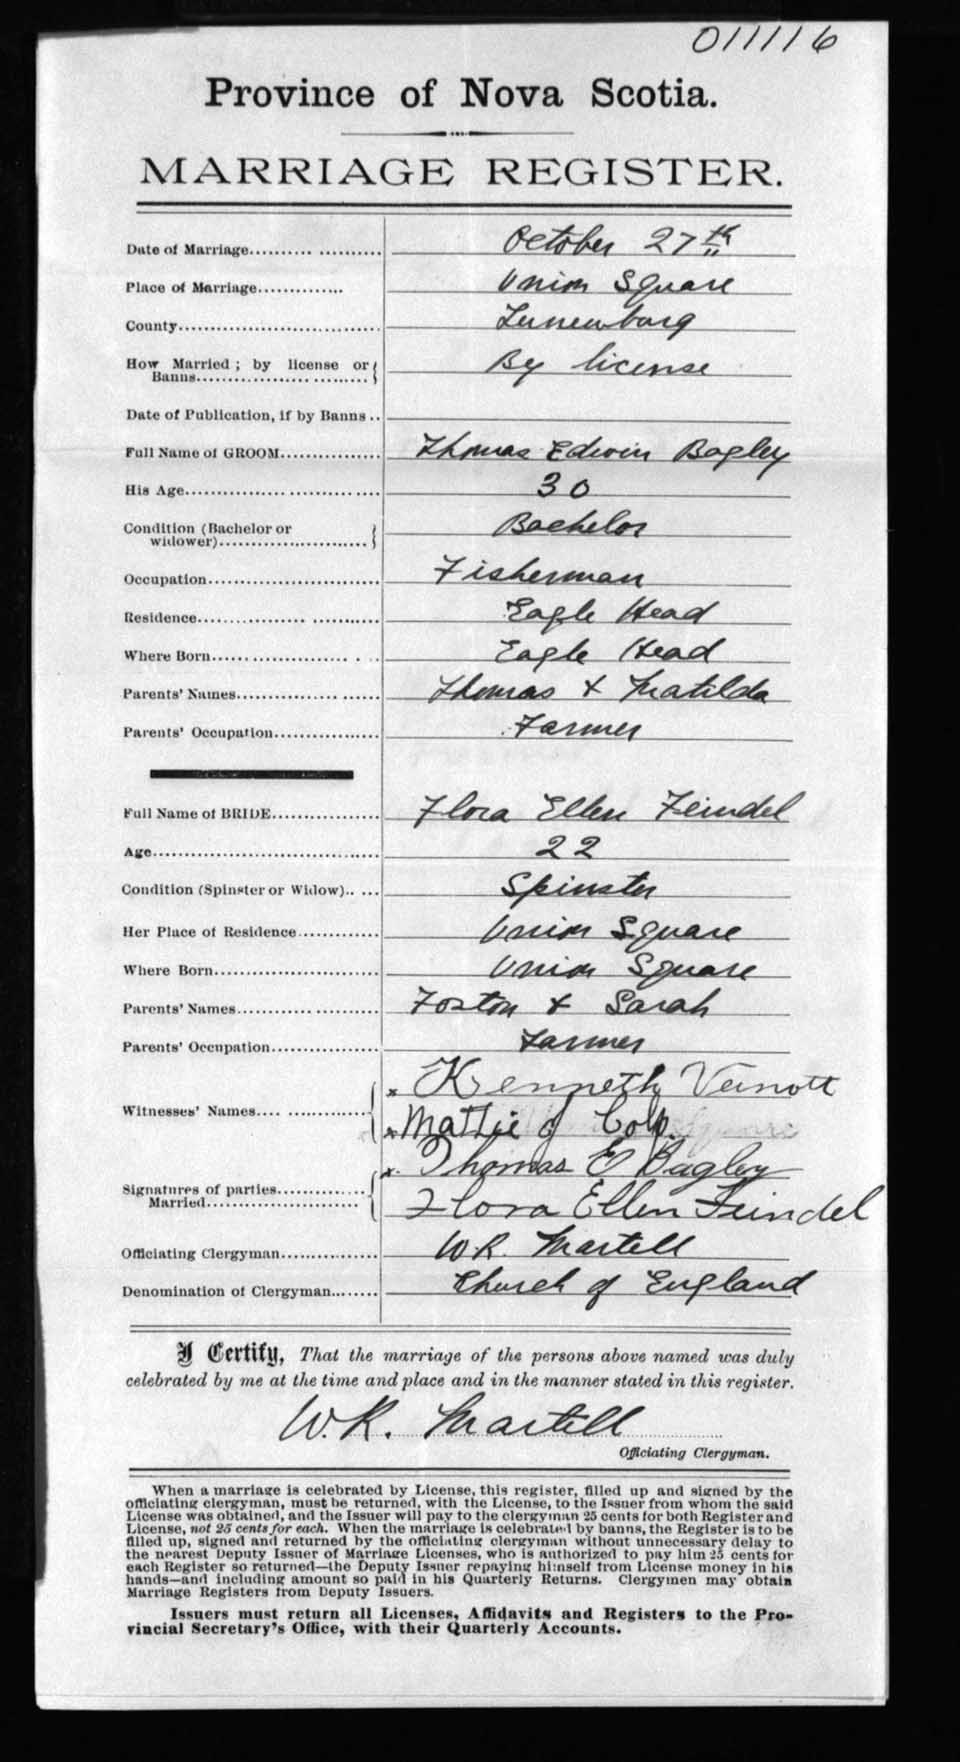 011116
Province of Nova Scotia.
MARRIAGE REGISTER.
Date of Marriage.......... ........... October 27th
Place of Marriage.............. Union Square
County.............................. Lunenburg
How Married ; by license or By license
Banns.................. .........
Date of Publication, if by Banns ..
Full Name of GROOM............... Thomas Edwin Bagley
His Age.............................. 30
Condition (Bachelor or Bachelor
widower).......................
Occupation.......................... Fisherman
Residence................ ........... Eagle Head
Where Born...................... . .. Eagle Head
Parents' Names................ ...... Thomas & Matilda
Parents' Occupation................ Farmer
Full Name of BRIDE................. Flora Ellen Feindel
Age................................... 22
Condition (Spinster or Widow).. ... Spinster
Her Place of Residence............. Union Square
Where Born.......................... Union Square
Parents' Names............ ........... Foston & Sarah
Parents' Occupation................. Farmer
x Kenneth Veinott
Witnesses' Names.... ..............
x Mattie J Colp.
x. Thomas E Bagley
Signatures of parties..............
Married........................
Flora Ellen Feindel
Officiating Clergyman............... W.R. Martell
Denomination of Clergyman........ Church of England
I Certify, That the marriage of the persons above named was duly
celebrated by me at the time and place and in the manner stated in this register.
W.R. Martell
Officiating Clergyman.
When a marriage is celebrated by License, this register, filled up and signed by the
officiating clergyman, must be returned, with the License, to the Issuer from whom the said
License was obtained, and the Issuer will pay to the clergyman 25 cents for both Register and
License, not 25 cents for each. When the marriage is celebrated by banns, the Register is to be
filled up, signed and returned by the officiating clergyman without unnecessary delay to
the nearest Deputy Issuer of Marriage Licenses, who is authorized to pay him 25 cents for
each Register so returned—the Deputy Issuer repaying himself from License money in his
hands—and including amount so paid in his Quarterly Returns. Clergymen may obtain
Marriage Registers from Deputy Issuers.
Issuers must return all Licenses, Affidavits and Registers to the Pro-
vincial Secretary's Office, with their Quarterly Accounts.